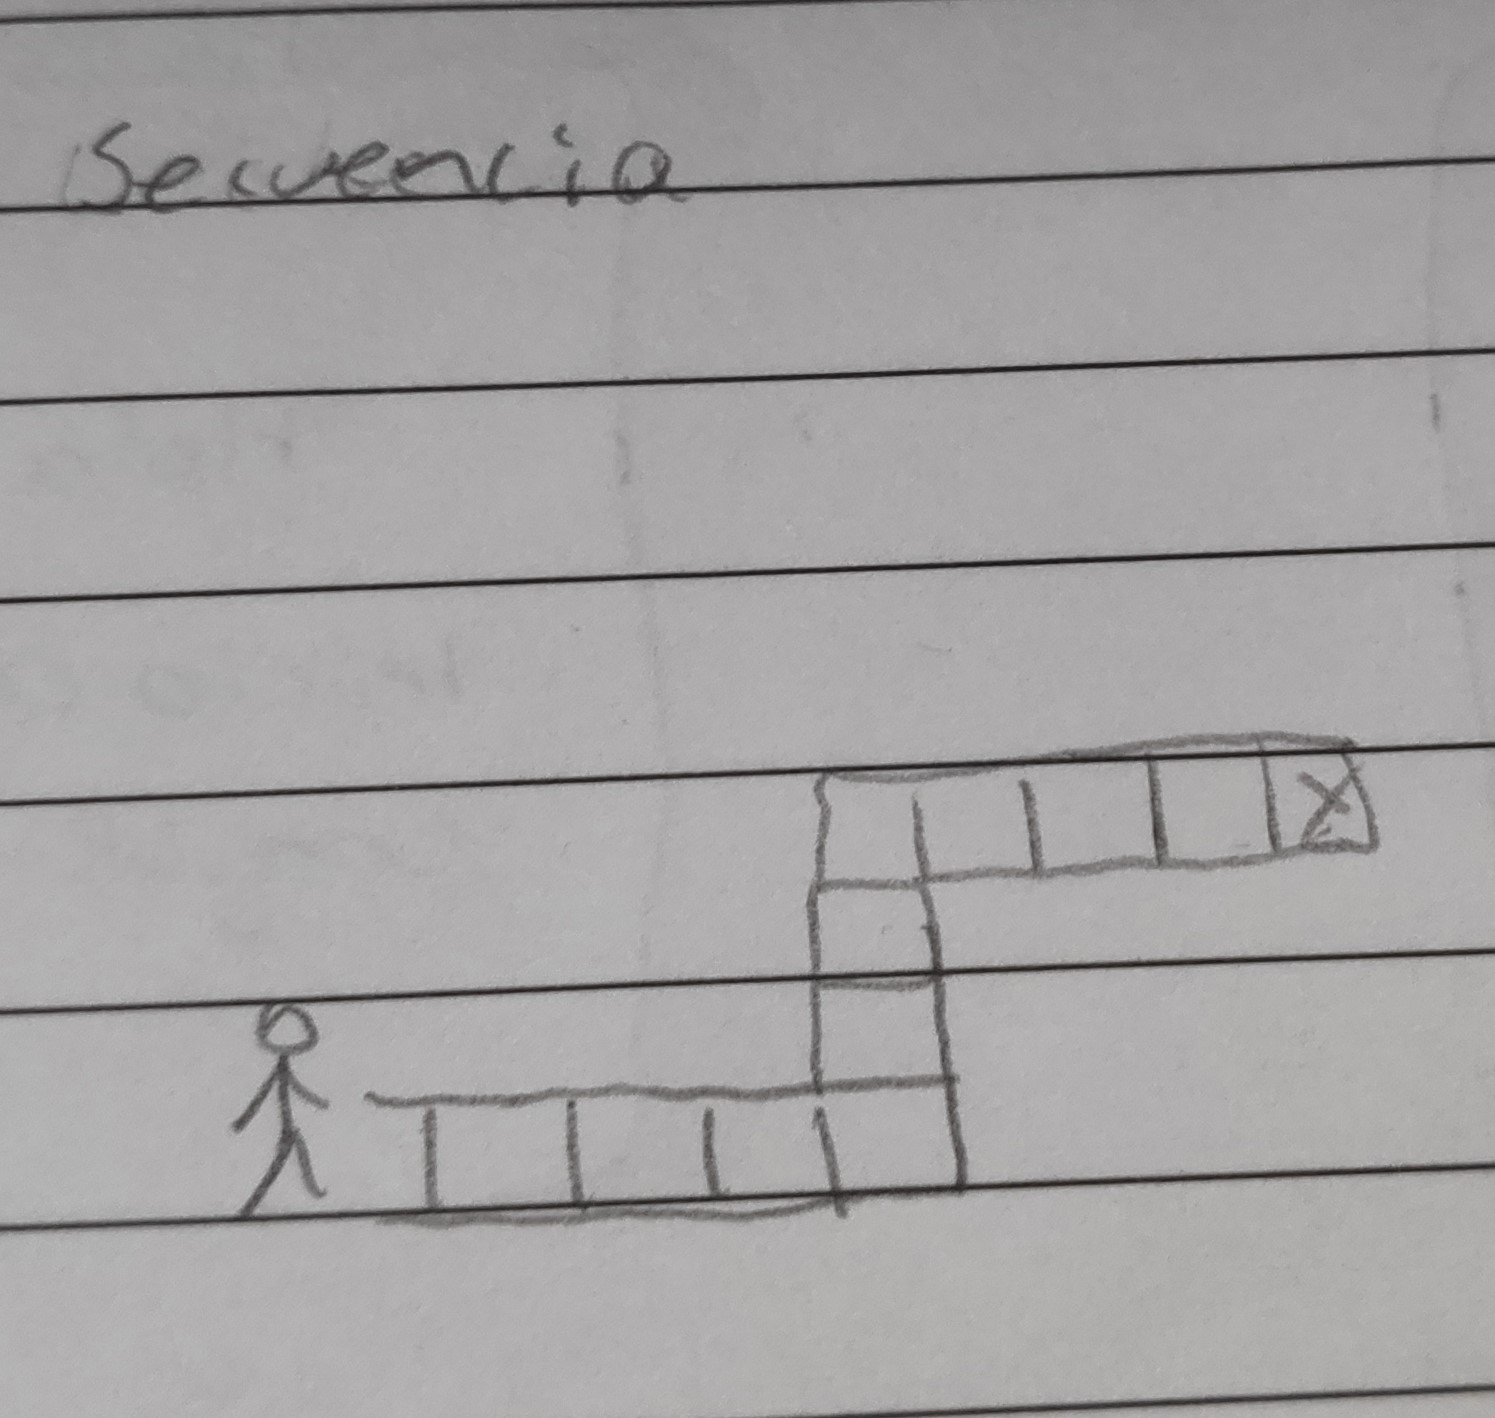 Secuencia
X